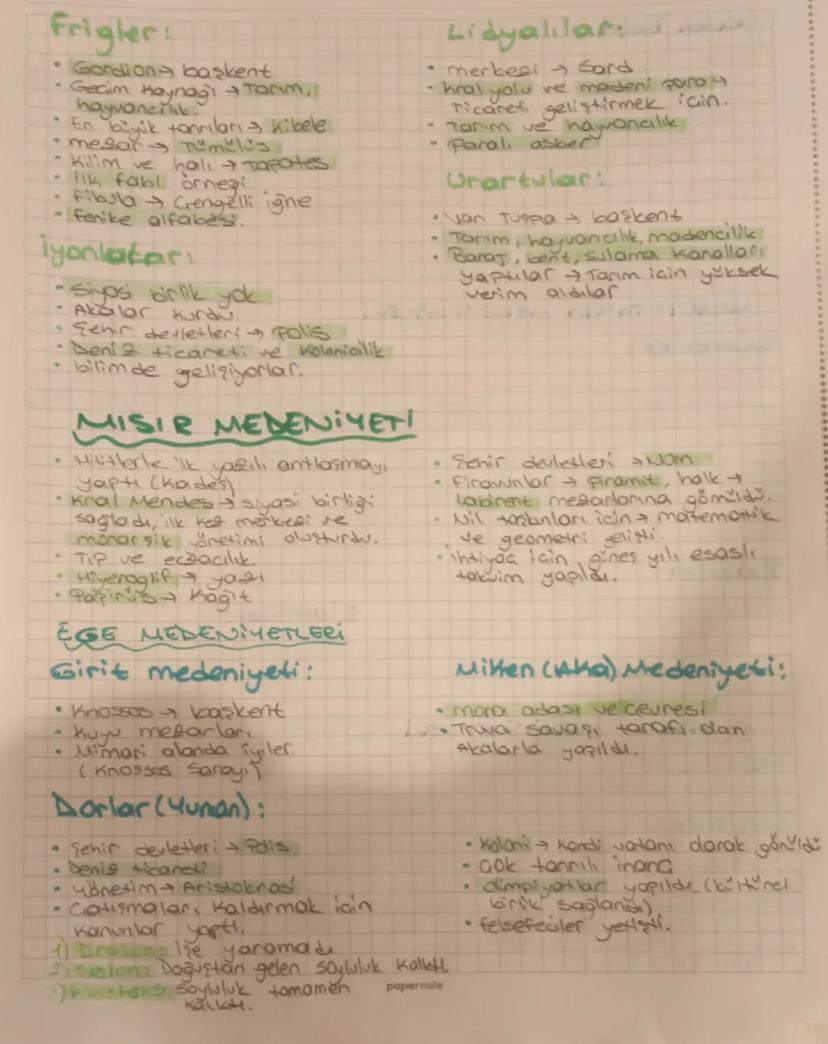 Frigler:
• Gordion → başkent
• Gecim kaynağı → Tarım,
hayvancılık.
• En büyük tanrıları → Kibele
• mezar → Tümülüs
• Kilim ve halı → Tapates
• ilk fabl örneği
• Fibula → Çengelli iğne
• Fenike alfabesi.
iyonlalar:
• Siyasi birlik yok
• Akalar kurdu
• Şehir devletleri → Polis
• Deniz ticareti ve Kolonicilik
• bilimde gelişiyorlar.
Lidyalılar:
• merkezi → Sard
• Kral yolu ve madeni para →
Ticareti geliştirmek icin.
• Tarım ve hayvancılık
• Paralı asker
Urartular:
• Van Tuşpa → başkent
• Tarım, hayvancılık, madencilik
• Baraj, bent, sulama kanalları
yaptılar → Tarım icin yüksek
verim aldılar
MISIR MEDENİYETİ
• Hititlerle ilk yazılı antlaşmayı
yaptı (Kadeş)
• Kral Mendes → siyasi birliği
sağladı, ilk kez merkezi ve
monarşik yönetimi oluşturdu.
• TIP ve eczacılık
• Hiyeroglif → yazı
• Papirüs → Kağıt
• Şehir devletleri → Nom
• Firavunlar → piramit, halk →
Labirent mezarlarına gömüldü.
• Nil taşkanları için → matematik
ve geometri gelişti.
• ihtiyaç için güneş yılı esaslı
takvim yapıldı.
EGE MEDENİYETLERİ
Girit medeniyeti:
• Knossos → başkent
• Kuyu mezarları
• Mimari alanda iyiler.
(Knossos Sarayı)
Miken (Aka) Medeniyeti:
• mora adası ve cevresi
• Truva savaşı tarafı dan
Akalarla yapıldı.
Dorlar (Yunan):
• Şehir devletleri → Polis
• Deniz ticareti
• Yönetim → Aristokrasi
• Catışmaları kaldırmak icin
kanunlar yaptı.
1) Dragon: işe yaramadı
2) Solon: Doğuştan gelen soyluluk kalktı.
3) Soyluluk tamamen
kalktı.
• Koloni → Kendi vatanı olarak görüldü
• Çok tanrılı inanç
• olimpiyatlar yapıldı. (kültürel
birlik sağlandı)
• felsefeciler yetişti.
papernote